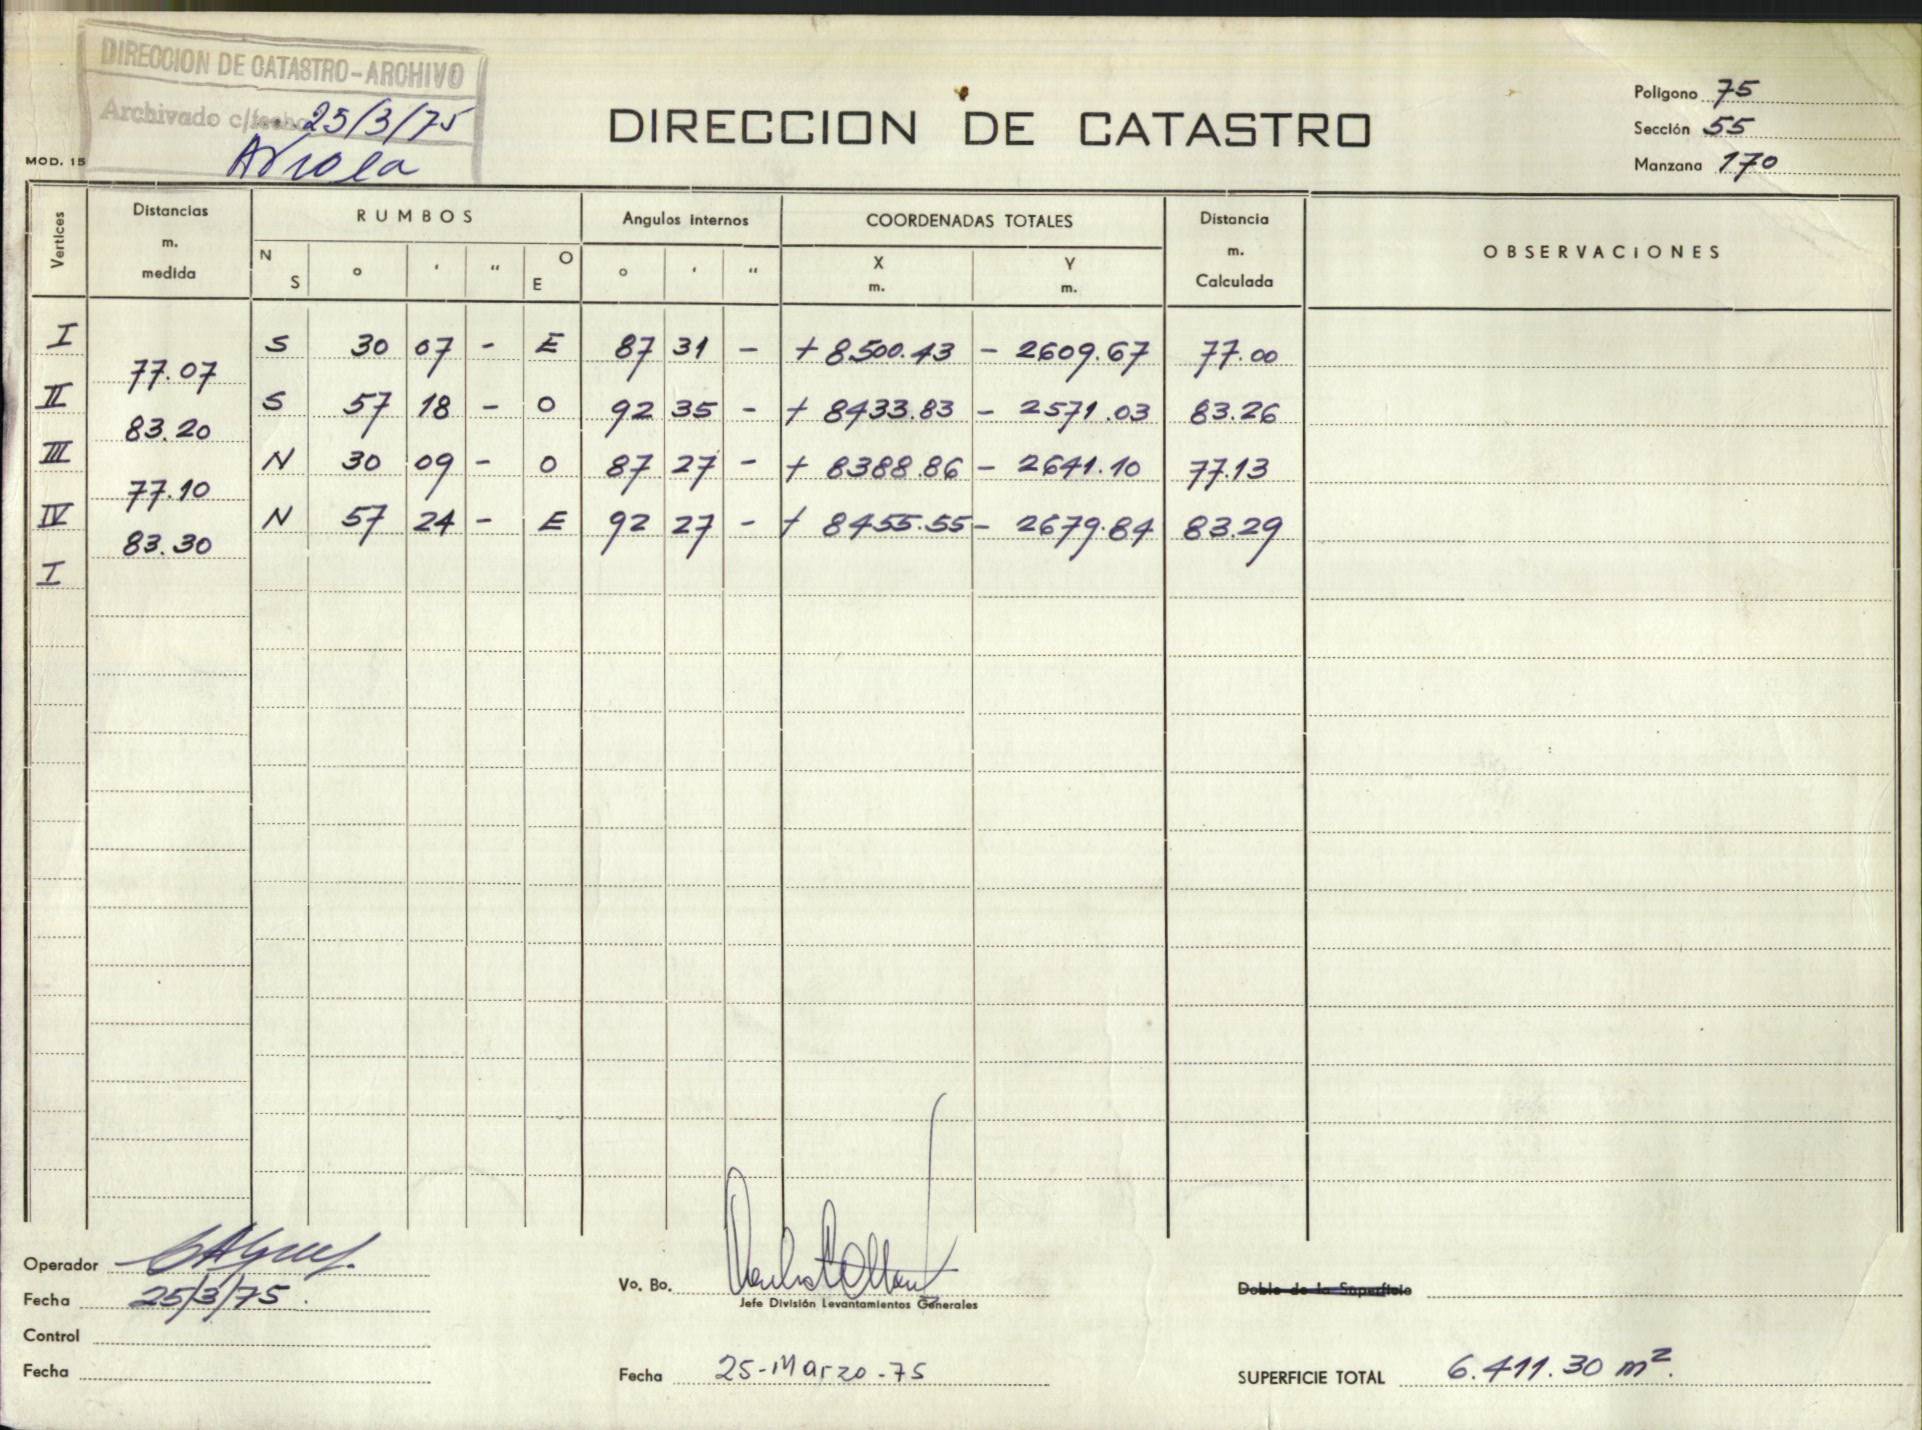 DIRECCION DE CATASTRO-ARCHIVO
Archivado c/fecha 25/3/75
Arrola
MOD. 15
DIRECCION DE CATASTRO
Polígono 75
Sección 55
Manzana 170
Vertices Distancias m. medida RUMBOS Angulos internos COORDENADAS TOTALES Distancia m. Calculada OBSERVACIONES
N S ° ' " O E ° ' " X m. Y m.
I S 30 07 - E 87 31 - + 8500.43 - 2609.67 77.00
77.07
II S 57 18 - O 92 35 - + 8433.83 - 2571.03 83.26
83.20
III N 30 09 - O 87 27 - + 8388.86 - 2641.10 77.13
77.10
IV N 57 24 - E 92 27 - + 8455.55 - 2679.84 83.29
83.30
I
Operador
Fecha 25/3/75.
Control
Fecha
Vo. Bo.
Jefe División Levantamientos Generales
Fecha 25-Marzo-75
Doble de la Superficie
SUPERFICIE TOTAL 6.411.30 m².